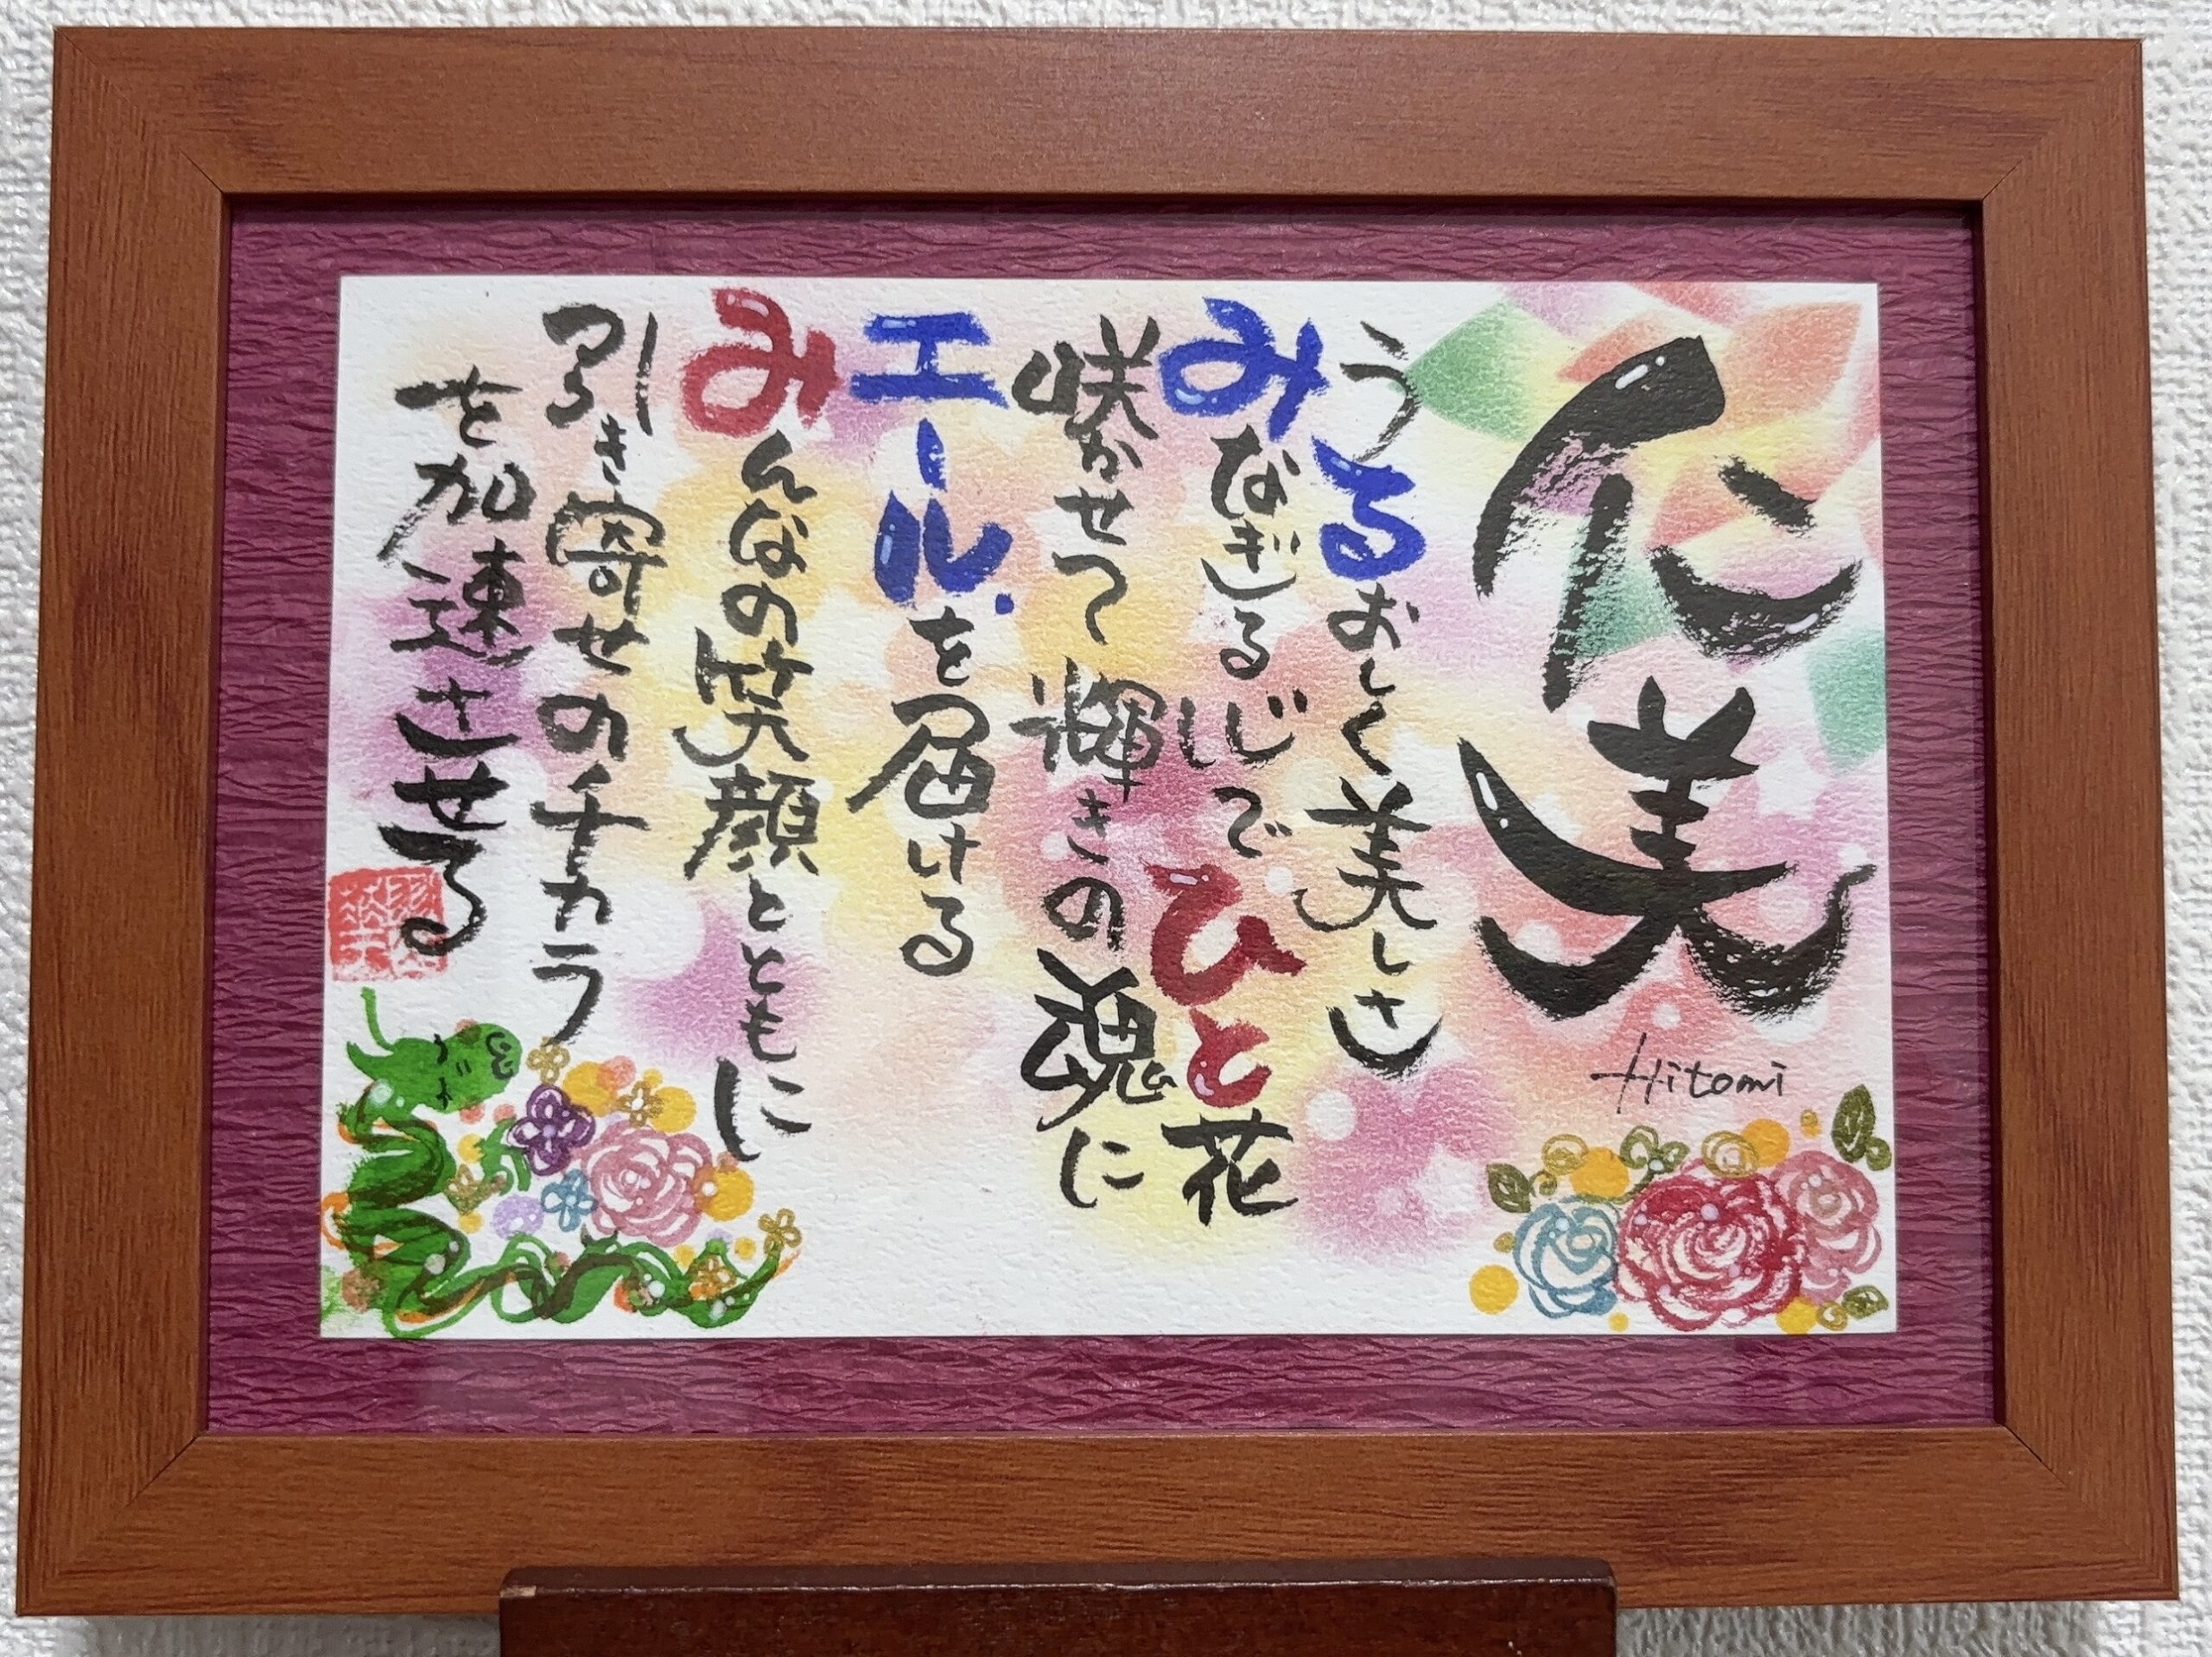 仁美
Hitomi
うるおしく美しさ
みなぎる心でひと花
咲かせて輝きの魂に
エールを届ける
みんなの笑顔とともに
引き寄せのチカラ
を加速させる